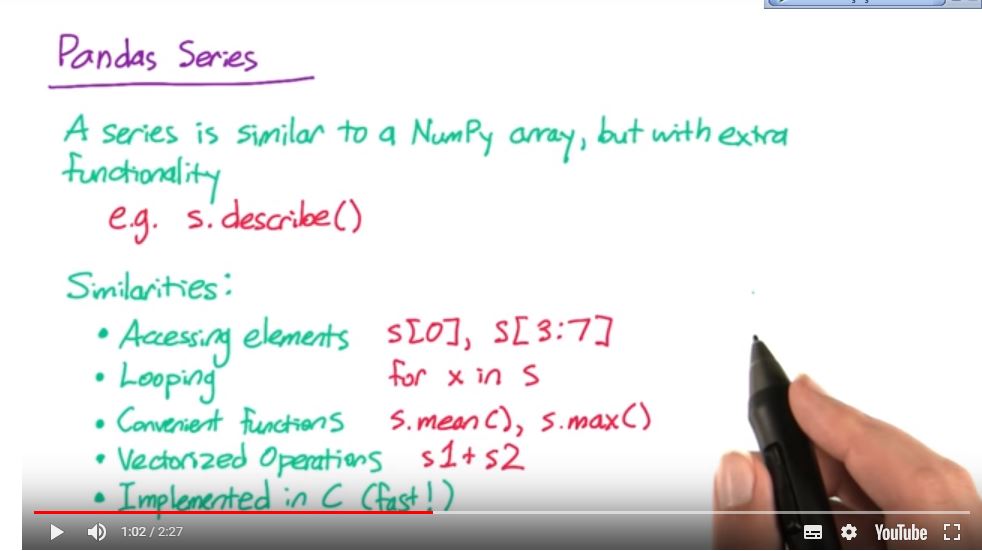 Pandas Series
A series is similar to a NumPy array, but with extra
functionality
e.g. s.describe()
Similarities:
• Accessing elements s[0], s[3:7]
• Looping for x in s
• Convenient functions s.mean(), s.max()
• Vectorized Operations s1+s2
• Implemented in C (fast!)
1:02 / 2:27
YouTube